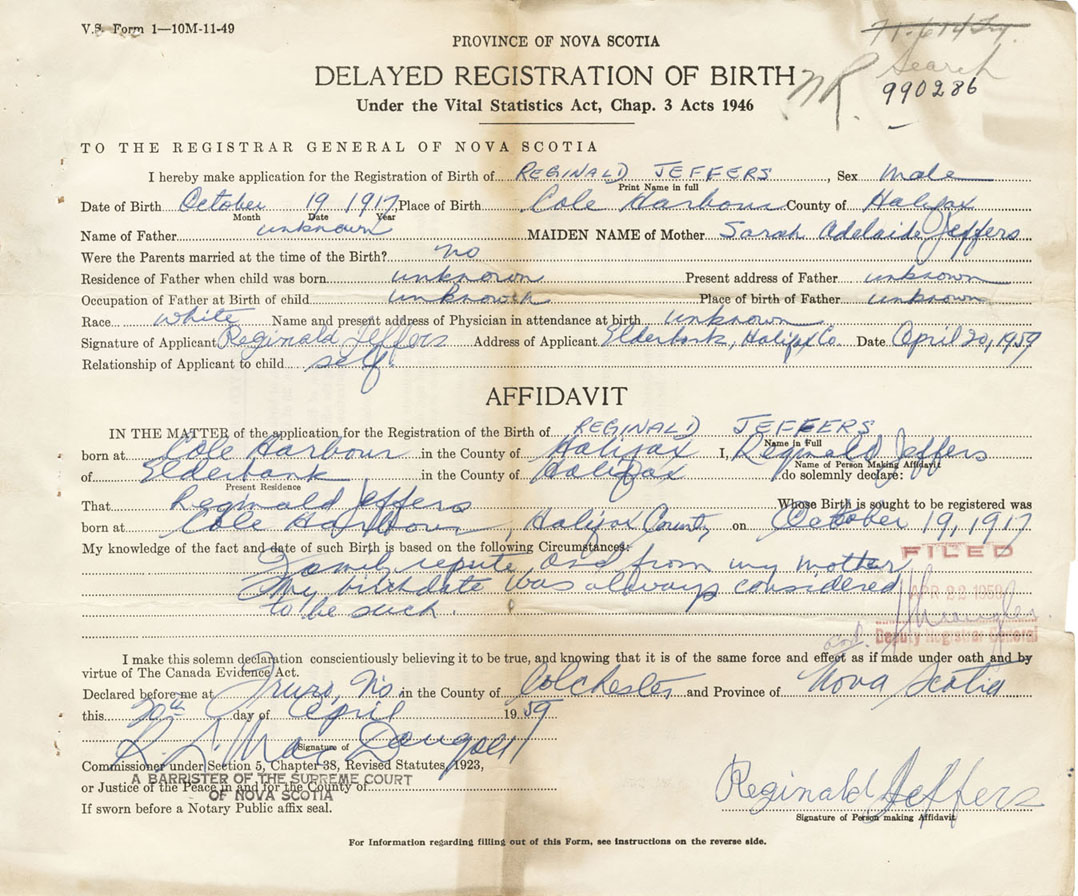 V.S. Form 1—10M-11-49
PROVINCE OF NOVA SCOTIA
DELAYED REGISTRATION OF BIRTH
NR
Search
990286
Under the Vital Statistics Act, Chap. 3 Acts 1946
TO THE REGISTRAR GENERAL OF NOVA SCOTIA
I hereby make application for the Registration of Birth of REGINALD JEFFERS, Sex Male
Print Name in full
Date of Birth October 19 1917, Place of Birth Cole Harbour County of Halifax
Month Date Year
Name of Father unknown MAIDEN NAME of Mother Sarah Adelaide Jeffers
Were the Parents married at the time of the Birth? no
Residence of Father when child was born unknown Present address of Father unknown
Occupation of Father at Birth of child unknown Place of birth of Father unknown
Race white Name and present address of Physician in attendance at birth unknown
Signature of Applicant Reginald Jeffers Address of Applicant Elderbank, Halifax Co. Date April 20, 1959
Relationship of Applicant to child self.
AFFIDAVIT
IN THE MATTER of the application for the Registration of the Birth of REGINALD JEFFERS
Name in Full
born at Cole Harbour in the County of Halifax I, Reginald Jeffers
Name of Person Making Affidavit
of Elderbank in the County of Halifax do solemnly declare:
Present Residence
That Reginald Jeffers Whose Birth is sought to be registered was
born at Cole Harbour, Halifax County on October 19, 1917
My knowledge of the fact and date of such Birth is based on the following Circumstances:
Family repute, and from my mother
My birthdate was always considered
to be such.
FILED
APR 22 1959
Deputy Registrar General
I make this solemn declaration conscientiously believing it to be true, and knowing that it is of the same force and effect as if made under oath and by
virtue of The Canada Evidence Act.
Declared before me at Truro, N.S. in the County of Colchester and Province of Nova Scotia
this 20th day of April 1959
R. S. MacDougall
Signature of
Commissioner under Section 5, Chapter 38, Revised Statutes, 1923,
A BARRISTER OF THE SUPREME COURT
or Justice of the Peace in and for the County of
OF NOVA SCOTIA
If sworn before a Notary Public affix seal.
Reginald Jeffers
Signature of Person making Affidavit
For Information regarding filling out of this Form, see instructions on the reverse side.